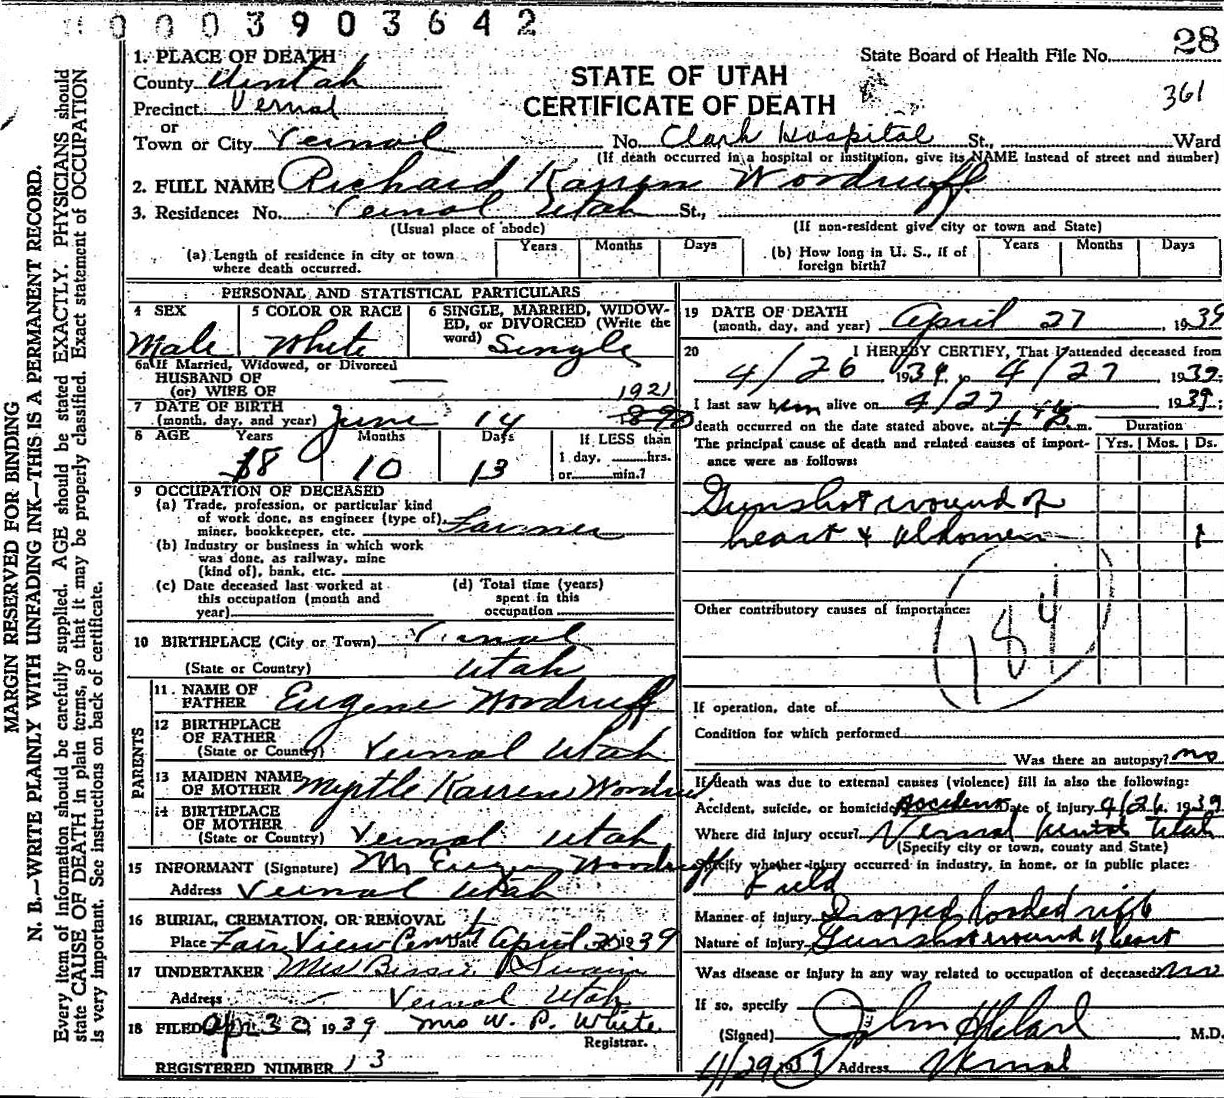 0003903642
28
State Board of Health File No.
361
STATE OF UTAH
CERTIFICATE OF DEATH
1. PLACE OF DEATH
County Uintah
Precinct Vernal
or
Town or City Vernal No. Clark Hospital St., Ward
(If death occurred in a hospital or institution, give its NAME instead of street and number)
2. FULL NAME Richard Karren Woodruff
3. Residence: No. Vernal Utah St.,
(Usual place of abode) (If non-resident give city or town and State)
(a) Length of residence in city or town where death occurred. Years Months Days
(b) How long in U. S., if of foreign birth? Years Months Days
PERSONAL AND STATISTICAL PARTICULARS
4 SEX Male
5 COLOR OR RACE White
6 SINGLE, MARRIED, WIDOWED, or DIVORCED (Write the word) Single
6a If Married, Widowed, or Divorced
HUSBAND OF
(or) WIFE OF
7 DATE OF BIRTH
(month, day, and year) June 14 1921
8 AGE Years 18 Months 10 Days 13
If LESS than
1 day, hrs.
or min.?
9 OCCUPATION OF DECEASED
(a) Trade, profession, or particular kind
of work done, as engineer (type of),
miner, bookkeeper, etc. Farmer
(b) Industry or business in which work
was done, as railway, mine
(kind of), bank, etc.
(c) Date deceased last worked at
this occupation (month and
year)
(d) Total time (years)
spent in this
occupation
10 BIRTHPLACE (City or Town) Vernal
(State or Country) Utah
PARENTS
11. NAME OF
FATHER Eugene Woodruff
12 BIRTHPLACE
OF FATHER
(State or Country) Vernal Utah
13 MAIDEN NAME
OF MOTHER Myrtle Karren Woodruff
14 BIRTHPLACE
OF MOTHER
(State or Country) Vernal Utah
15 INFORMANT (Signature) Mr Eugene Woodruff
Address Vernal Utah
16 BURIAL, CREMATION, OR REMOVAL
Place Fair View Cemet Date April 30 1939
17 UNDERTAKER Mrs Bessie Swain
Address Vernal Utah
18 FILED Apr 30 1939 Mrs W. P. White
Registrar.
REGISTERED NUMBER 13
19 DATE OF DEATH
(month, day, and year) April 27 1939
20 I HEREBY CERTIFY, That I attended deceased from
4/26 1939 to 4/27 1939
I last saw him alive on 4/27 1939;
death occurred on the date stated above, at m.
The principal cause of death and related causes of importance were as follows:
Duration
Yrs. Mos. Ds.
Gunshot wound of
heart & abdomen 1
184
Other contributory causes of importance:
If operation, date of
Condition for which performed
Was there an autopsy? no
If death was due to external causes (violence) fill in also the following:
Accident, suicide, or homicide Accident Date of injury 4/26, 1939
Where did injury occur? Vernal Uintah Utah
(Specify city or town, county and State)
Specify whether injury occurred in industry, in home, or in public place:
Field
Manner of injury Dropped loaded rifle
Nature of injury Gunshot wound of heart
Was disease or injury in any way related to occupation of deceased no
If so, specify
(Signed) John H Clark M.D.
Address Vernal
MARGIN RESERVED FOR BINDING
N. B.—WRITE PLAINLY WITH UNFADING INK—THIS IS A PERMANENT RECORD.
Every item of information should be carefully supplied. AGE should be stated EXACTLY. PHYSICIANS should
state CAUSE OF DEATH in plain terms, so that it may be properly classified. Exact statement of OCCUPATION
is very important. See instructions on back of certificate.